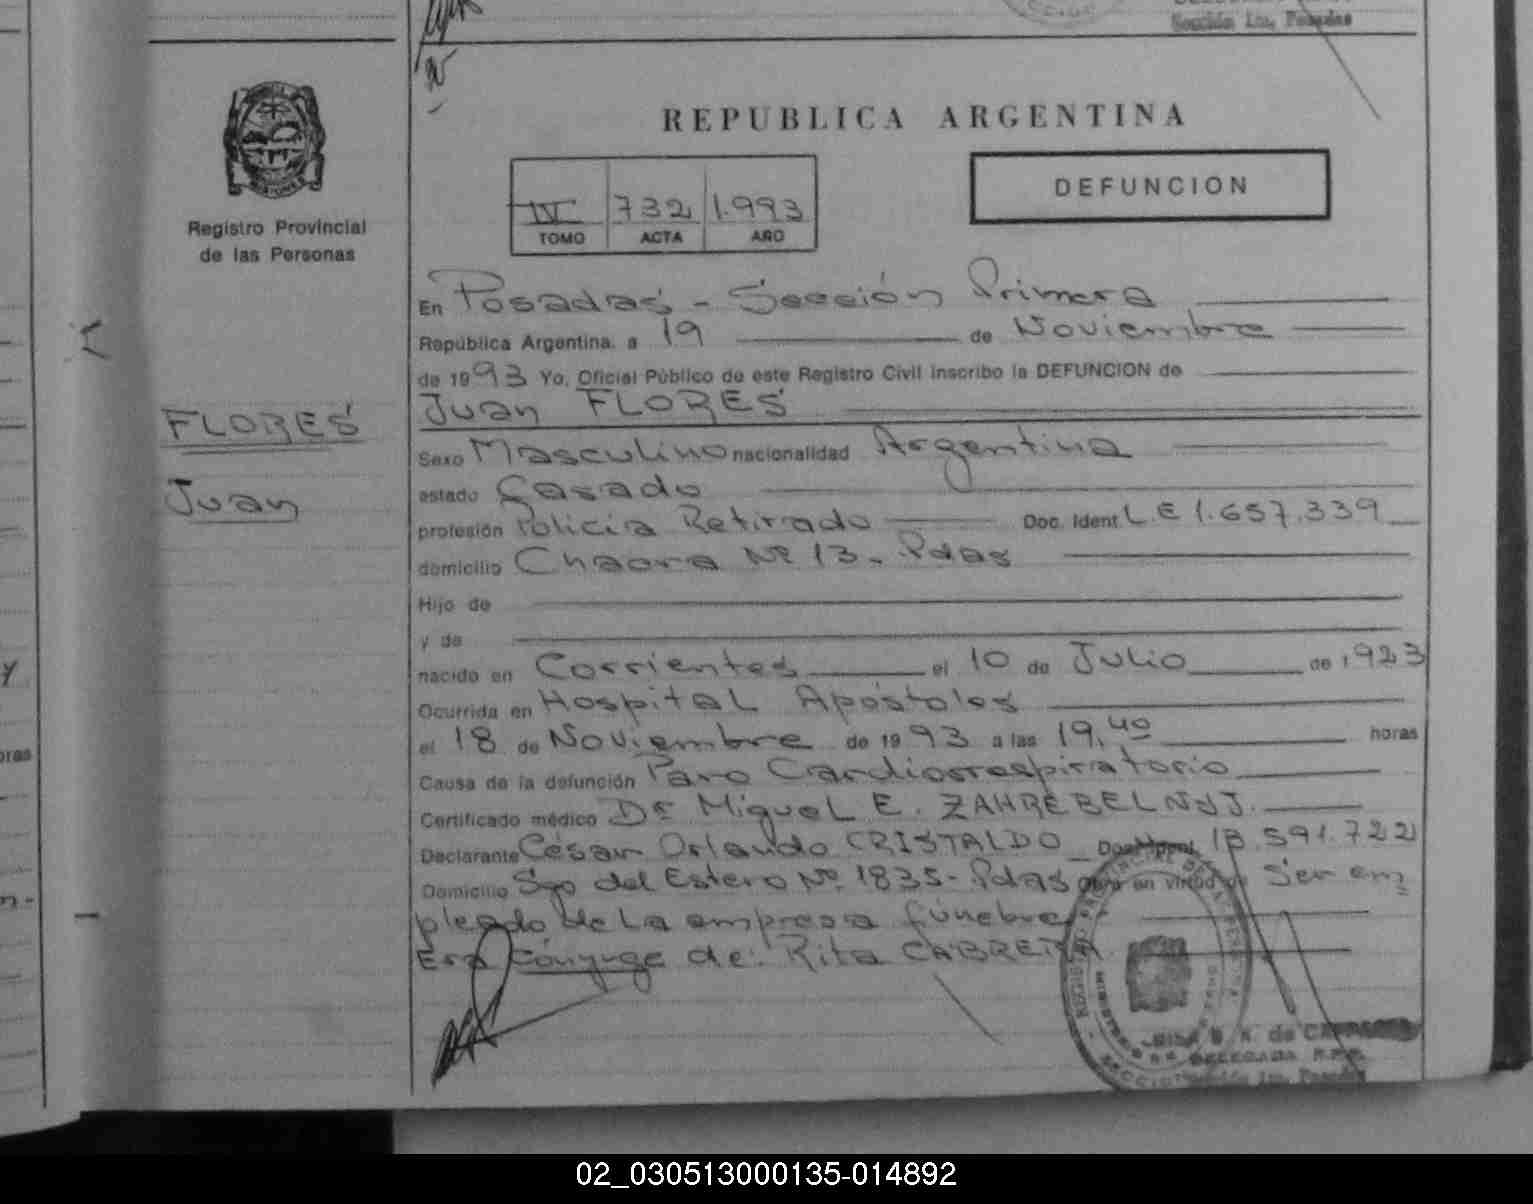 Sección 1ra. Posadas
REPUBLICA ARGENTINA
IV 732 1.993
TOMO ACTA AÑO
DEFUNCION
Registro Provincial
de las Personas
FLORES
Juan
En Posadas - Sección Primera
República Argentina, a 19 de Noviembre
de 1993 Yo, Oficial Público de este Registro Civil inscribo la DEFUNCION de
Juan FLORES
Sexo Masculino nacionalidad Argentina
estado Casado
profesión Policia Retirado Doc. Ident L.E 1.657.339
domicilio Chacra Nº 13 - Pdas
Hijo de
y de
nacido en Corrientes el 10 de Julio de 1923
Ocurrida en Hospital Apóstoles
el 18 de Noviembre de 1993 a las 19,40 horas
Causa de la defunción Paro Cardiorrespiratorio
Certificado médico Dr Miguel E.
Declarante César Orlando CRISTALDO 18.591.722
Domicilio Sgo del Estero Nº 1835 - Pdas Obra en virtud de Ser em
pleado de La empresa fúnebre
Era Cónyuge de: Rita CABRERA.
DELEGADA R.P.P.
02_030513000135-014892